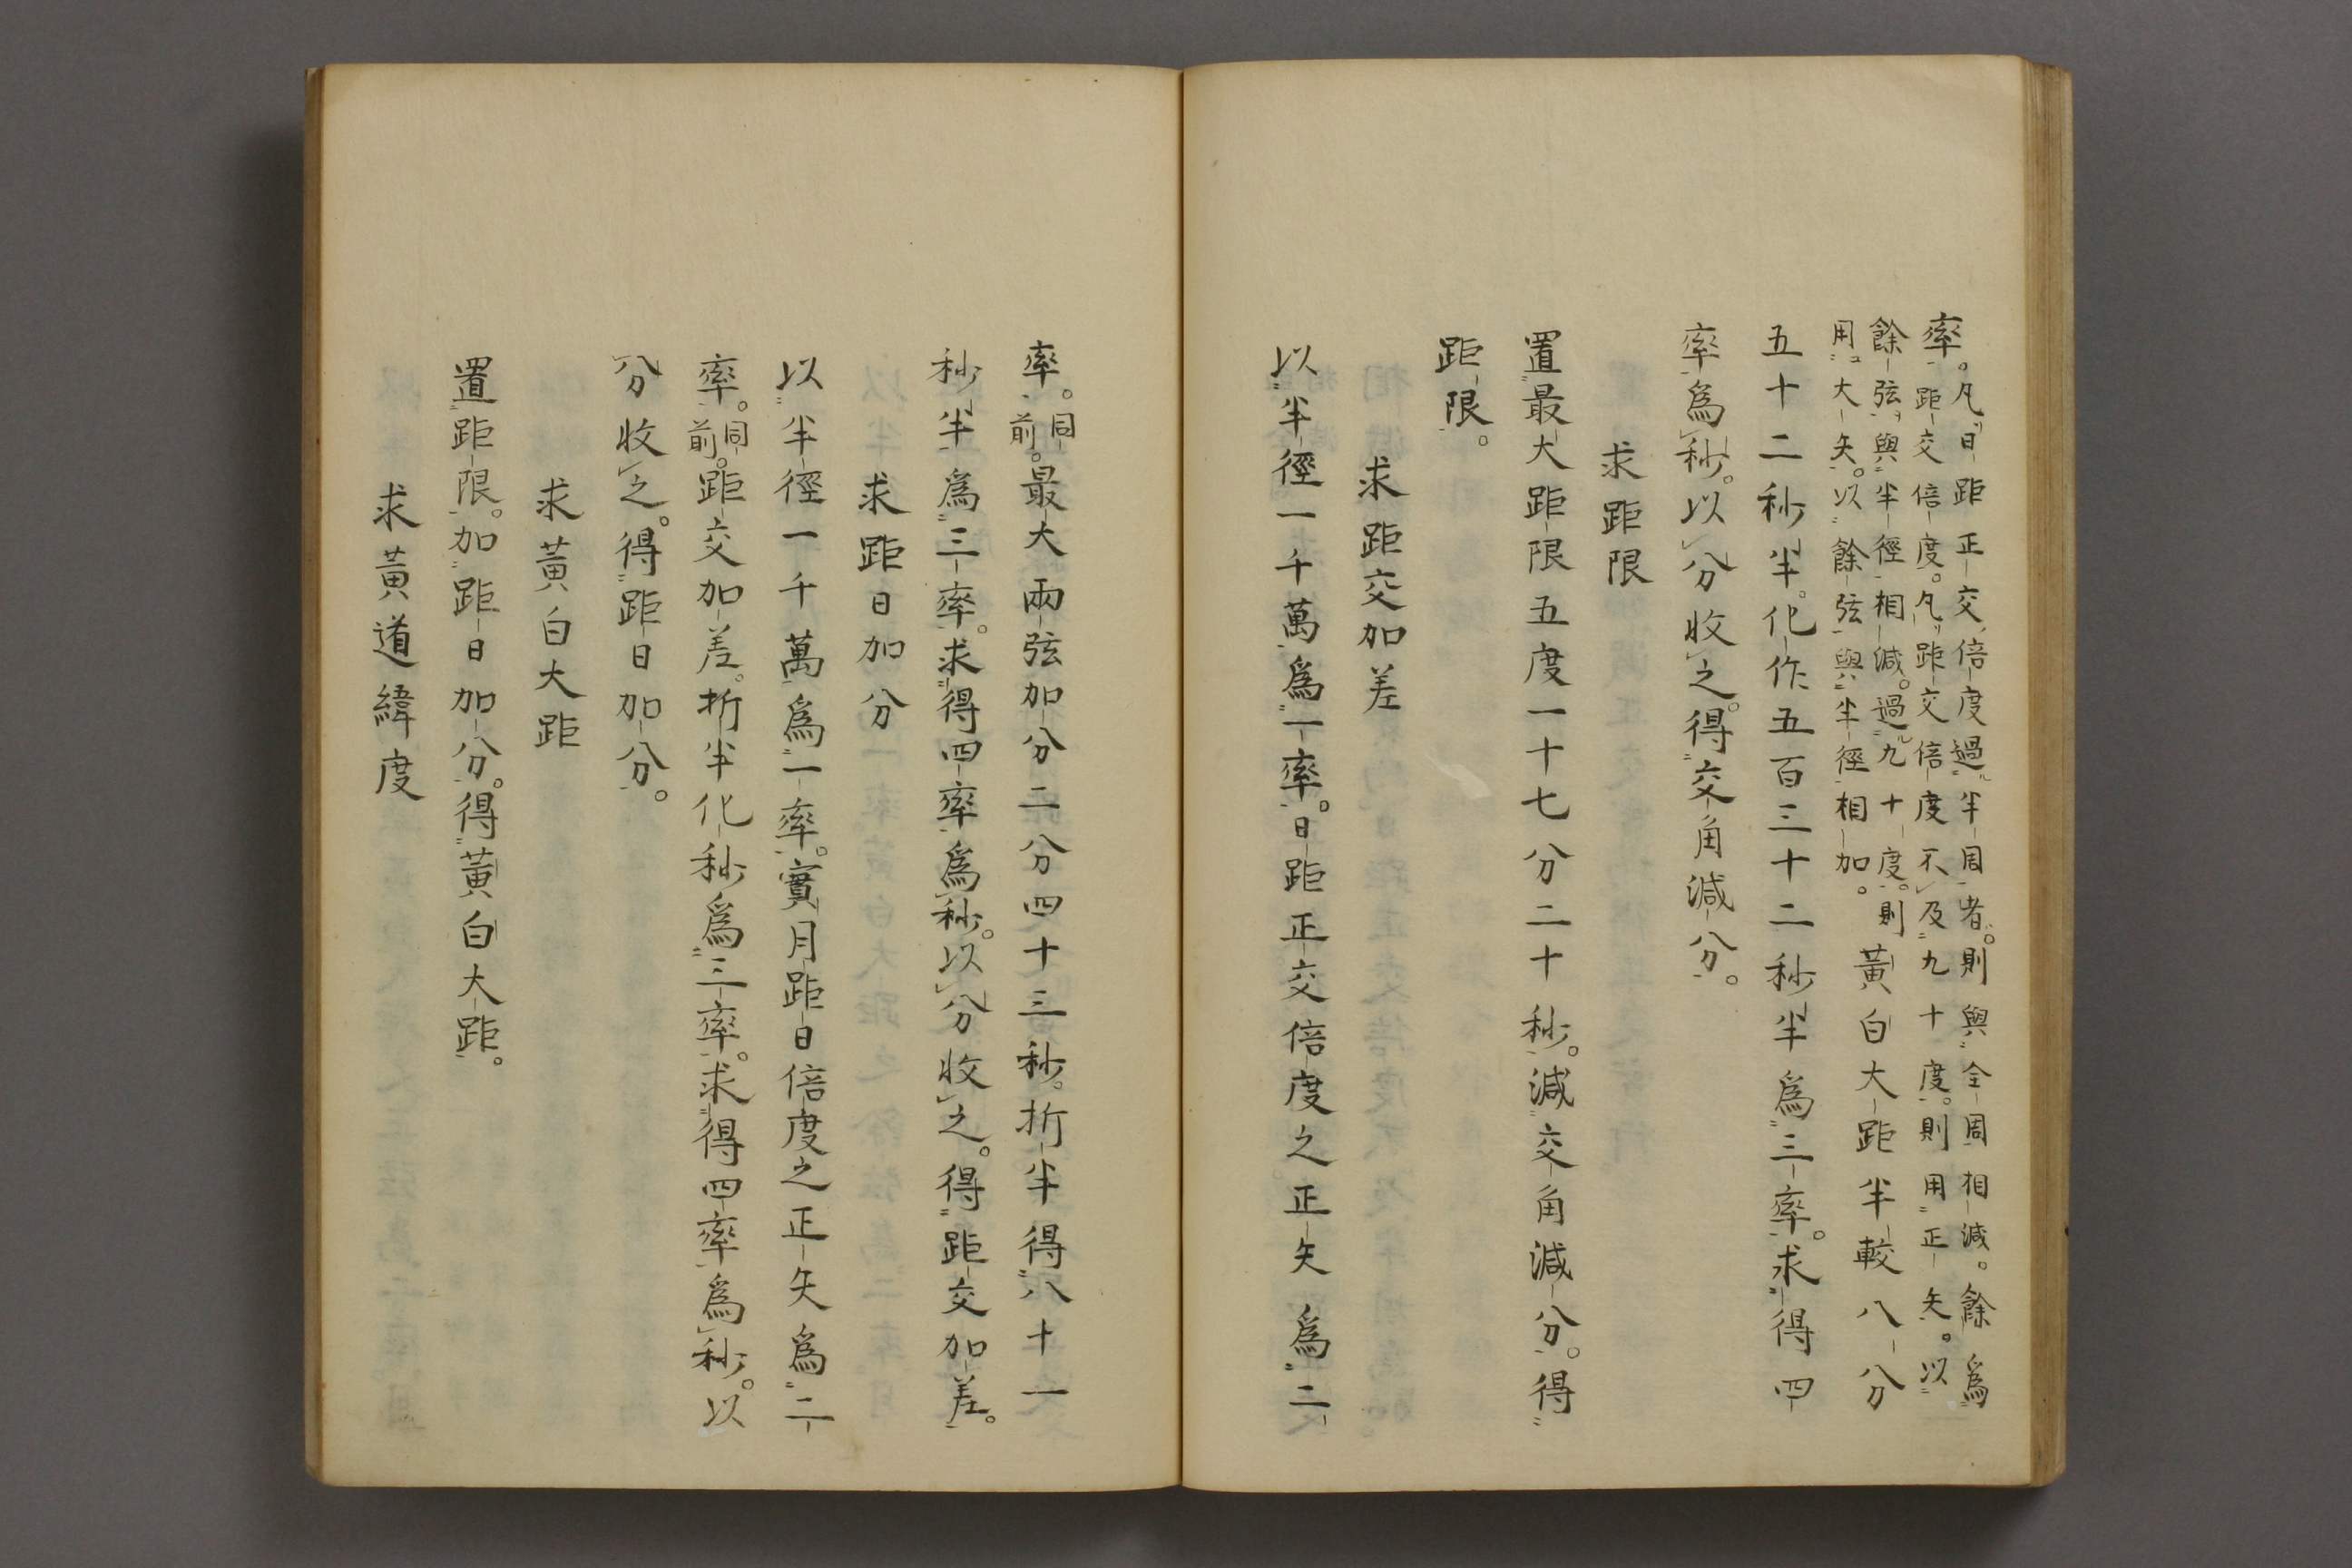 率。凡日距正交倍度過半周者。則與全周相減。餘爲
距交倍度。凡距交倍度不及九十度。則用正矢。以
餘弦與半徑相減。過九十度。則
用大矢。以餘弦與半徑相加。
黃白大距半較八分
五十二秒半。化作五百三十二秒半爲三率。求得四
率爲秒。以分收之。得交角減分。
求距限
置最大距限五度一十七分二十秒。減交角減分。得
距限。
求距交加差
以半徑一千萬爲一率。日距正交倍度之正矢爲二
率。同前。最大兩弦加分二分四十三秒。折半得八十一
秒半爲三率。求得四率爲秒。以分收之。得距交加差。
求距日加分
以半徑一千萬爲一率。實月距日倍度之正矢爲二
率。同前。距交加差。折半化秒爲三率。求得四率爲秒。以
分收之。得距日加分。
求黃白大距
置距限。加距日加分。得黃白大距。
求黃道緯度